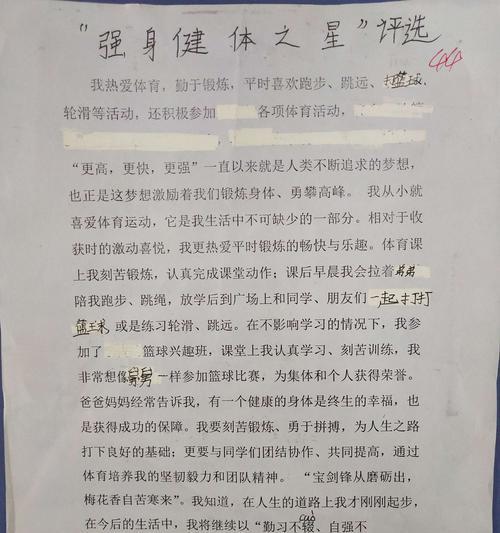 “强身健体之星”评选
44
我热爱体育，勤于锻炼，平时喜欢跑步、跳远、打篮球，
轮滑等活动，还积极参加 各项体育活动，
“更高，更快，更强”一直以来就是人类不断追求的梦想，
也正是这梦想激励着我们锻炼身体、勇攀高峰。 我从小就
喜爱体育运动，它是我生活中不可缺少的一部分。相对于收
获时的激动喜悦，我更热爱平时锻炼的畅快与乐趣。体育课
上我刻苦锻炼，认真完成课堂动作；课后早晨我会拉着弟弟
陪我跑步、跳绳，放学后到广场上和同学、朋友们一起打打
篮球 或是练习轮滑、跳远。在不影响学习的情况下，我参
加了 篮球兴趣班，课堂上我认真学习、刻苦训练，我
非常想像舅舅一样参加篮球比赛，为集体和个人获得荣誉。
爸爸妈妈经常告诉我，有一个健康的身体是终生的幸福，也
是获得成功的保障。我要刻苦锻炼、勇于拼搏，为人生之路
打下良好的基础；更要与同学们团结协作、共同提高，通过
体育培养我的坚韧毅力和团队精神。 “宝剑锋从磨砺出，
梅花香自苦寒来”。我知道，在人生的道路上我才刚刚起步，
在今后的生活中，我将继续以“勤习不辍、自强不